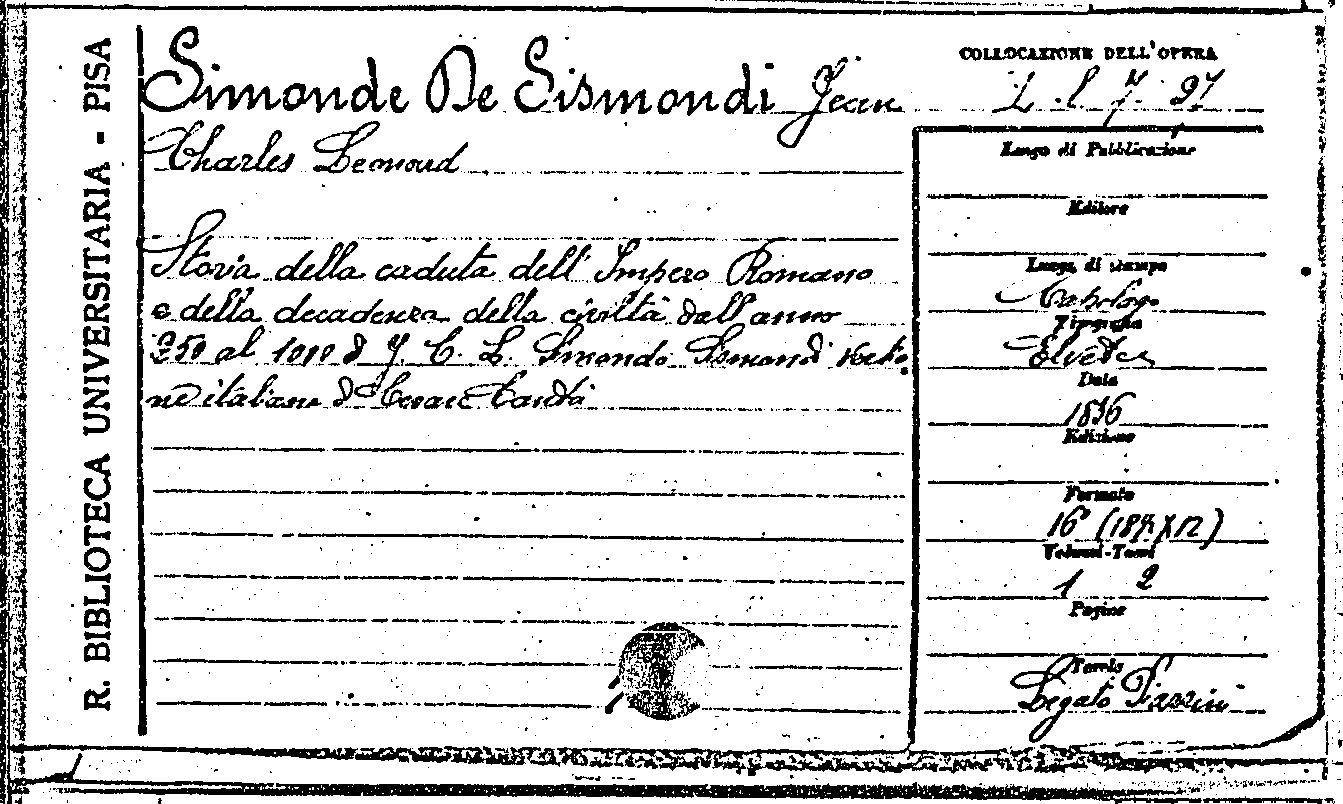 R. BIBLIOTECA UNIVERSITARIA - PISA
Simonde De Sismondi Jean
Charles Leonard
Storia della caduta dell'Impero Romano
e della decadenza della civiltà dall'anno
250 al 1000 di J. C. L. Simondo Sismondi
italiana di Cesare Cantù
COLLOCAZIONE DELL'OPERA
L. l. 7. 97
Luogo di Pubblicazione
Editore
Luogo di stampa
Capolago
Tipografia
Elvetica
Data
1836
Edizione
Formato
16°
Volumi-Tomi
1 2
Pagine
Tavole
Legato